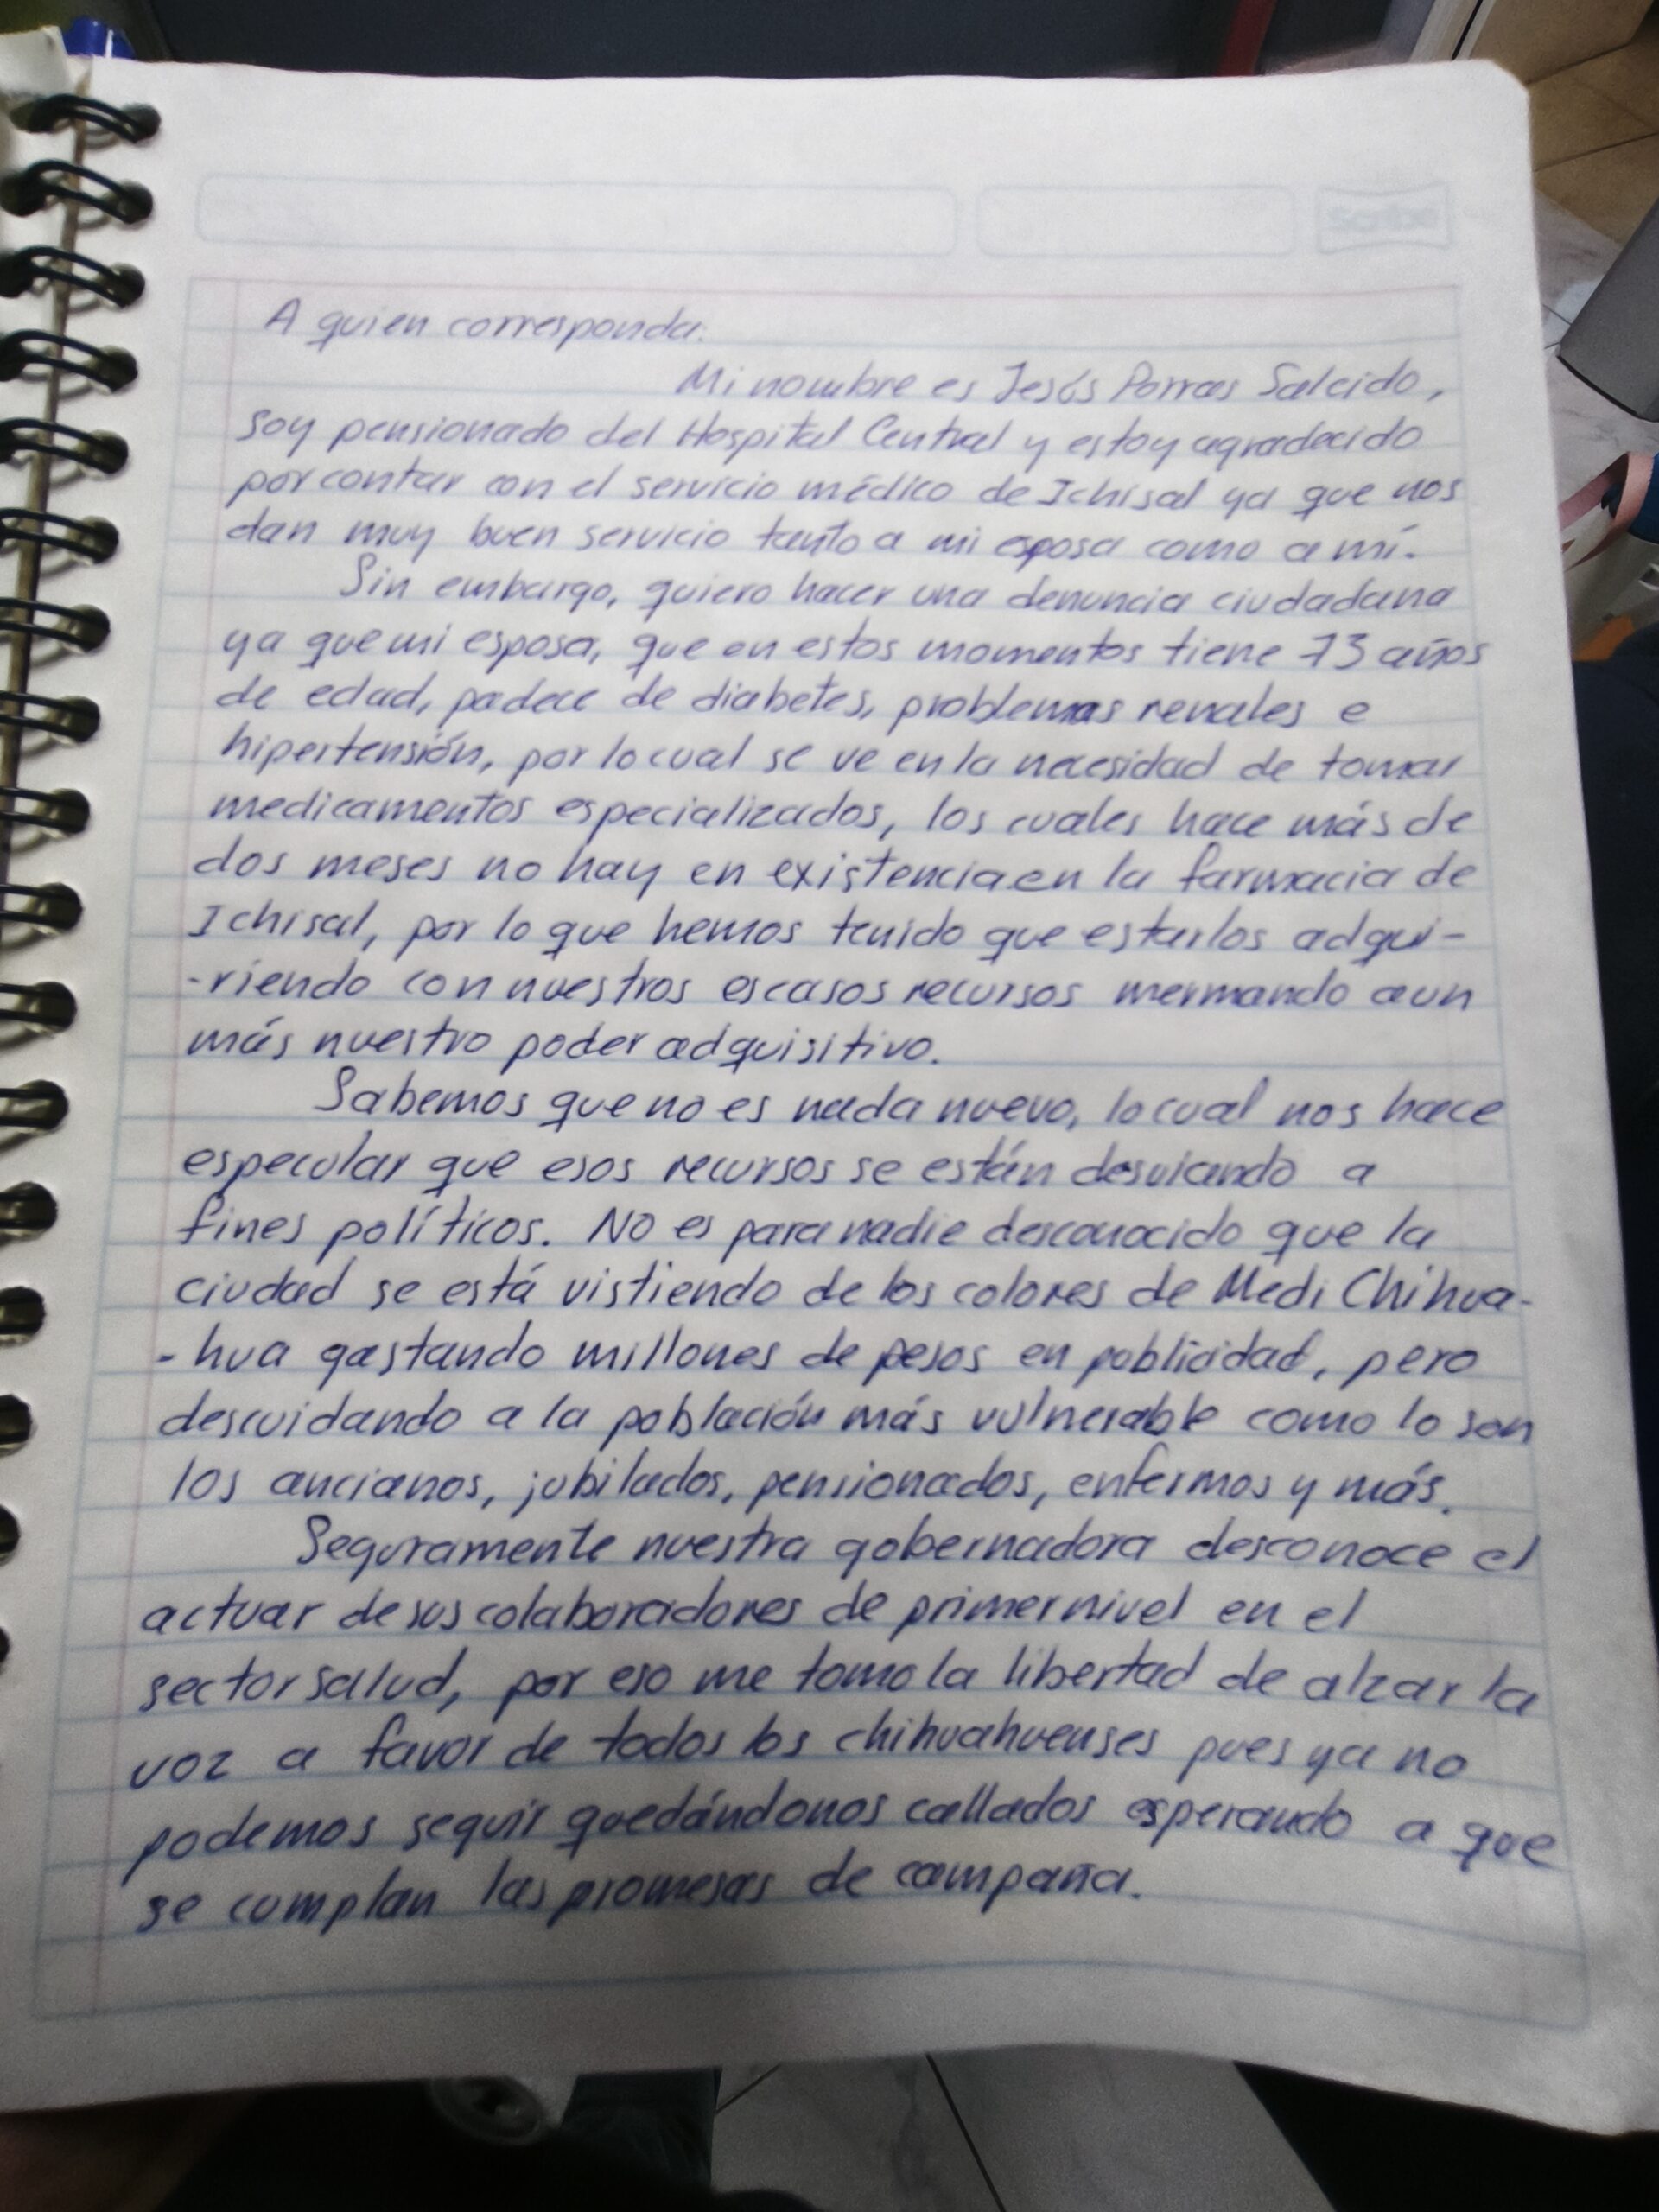 Scribe
A quien corresponda:
Mi nombre es Jesús Porras Salcido,
soy pensionado del Hospital Central y estoy agradecido
por contar con el servicio médico de Ichisal ya que nos
dan muy buen servicio tanto a mi esposa como a mí.
Sin embargo, quiero hacer una denuncia ciudadana
ya que mi esposa, que en estos momentos tiene 73 años
de edad, padece de diabetes, problemas renales e
hipertensión, por lo cual se ve en la necesidad de tomar
medicamentos especializados, los cuales hace más de
dos meses no hay en existencia en la farmacia de
Ichisal, por lo que hemos tenido que estarlos adqui-
-riendo con nuestros escasos recursos mermando aun
más nuestro poder adquisitivo.
Sabemos que no es nada nuevo, lo cual nos hace
especular que esos recursos se están desviando a
fines políticos. No es para nadie desconocido que la
ciudad se está vistiendo de los colores de Medi Chihua-
-hua gastando millones de pesos en publicidad, pero
descuidando a la población más vulnerable como lo son
los ancianos, jubilados, pensionados, enfermos y más.
Seguramente nuestra gobernadora desconoce el
actuar de sus colaboradores de primer nivel en el
sector salud, por eso me tomo la libertad de alzar la
voz a favor de todos los chihuahuenses pues ya no
podemos seguir quedándonos callados esperando a que
se cumplan las promesas de campaña.